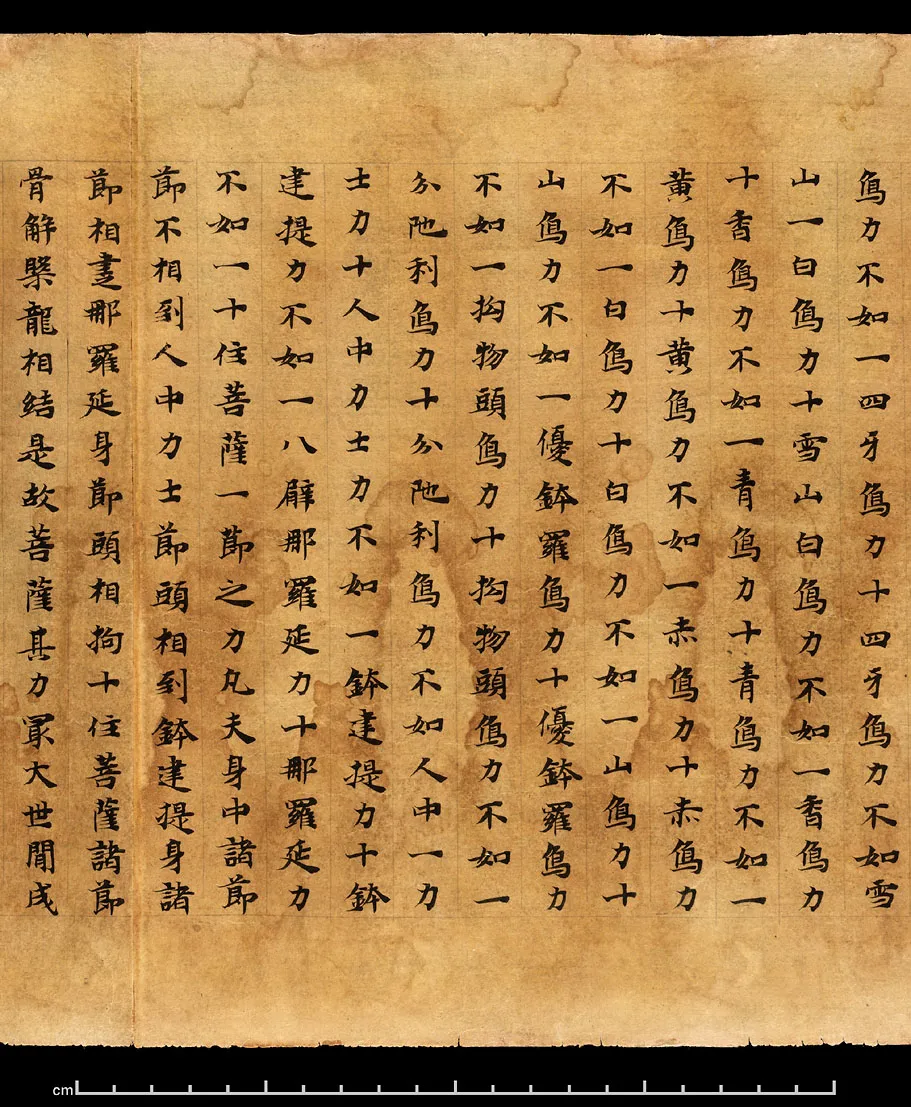 象力不如一四牙象力十四牙象力不如雪
山一白象力十雪山白象力不如一香象力
十香象力不如一青象力十青象力不如一
黄象力十黄象力不如一赤象力十赤象力
不如一白象力十白象力不如一山象力十
山象力不如一優鉢羅象力十優鉢羅象力
不如一拘物頭象力十拘物頭象力不如一
分陁利象力十分陁利象力不如人中一力
士力十人中力士力不如一鉢建提力十鉢
建提力不如一八臂那羅延力十那羅延力
不如一十住菩薩一節之力凡夫身中諸節
節不相到人中力士節頭相到鉢建提身諸
節相那羅延身節頭相拘十住菩薩諸節
骨解槃龍相結是故菩薩其力冣大世間成